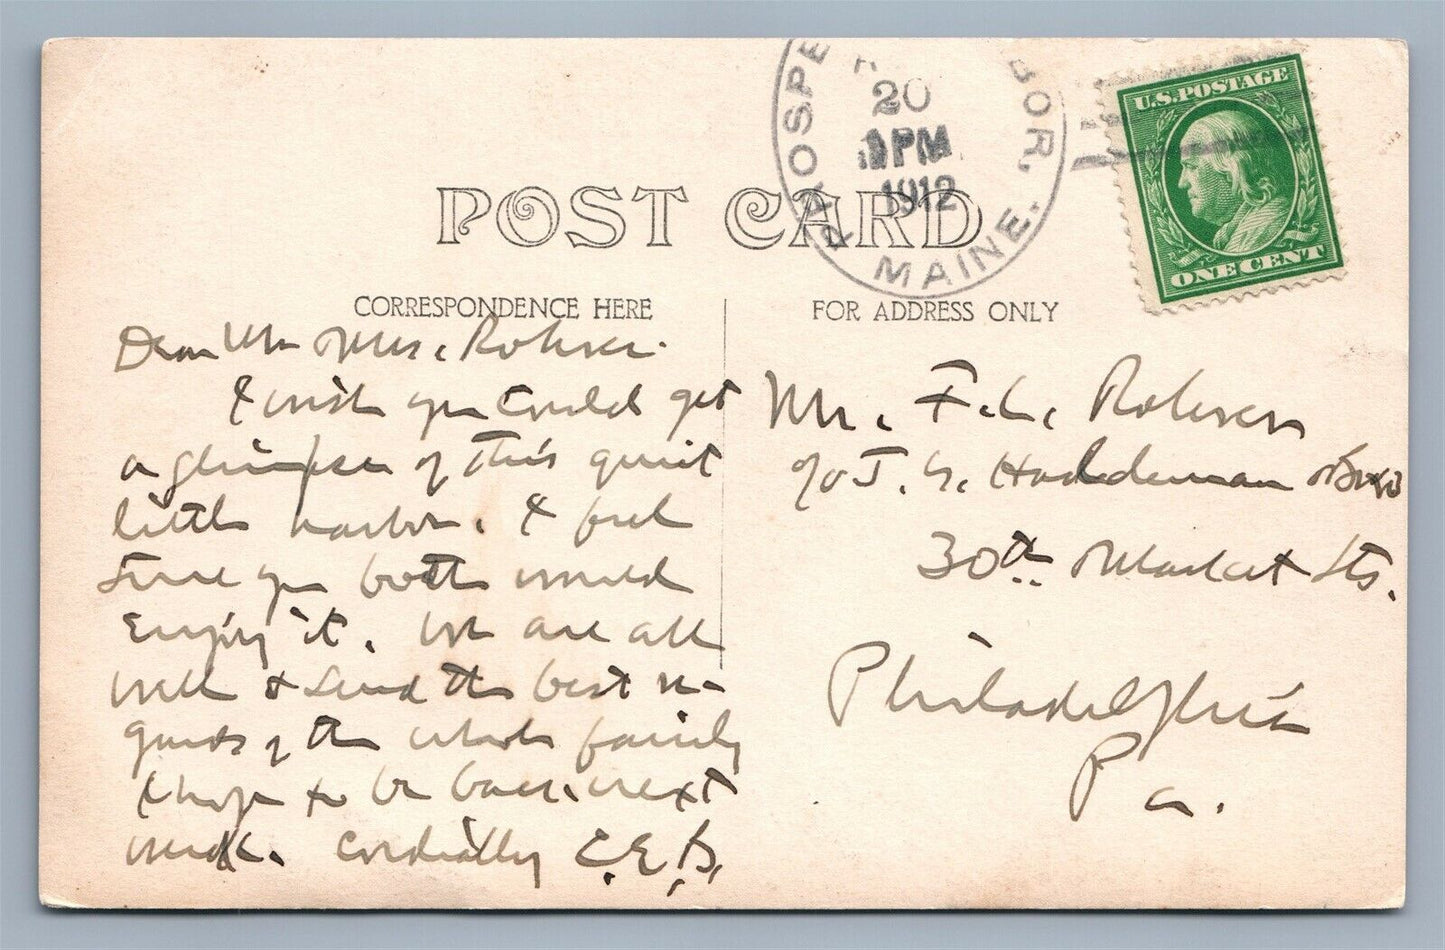 PROSPE BOR, MAINE.
20
1 PM
1912
U.S. POSTAGE
ONE CENT
POST CARD
CORRESPONDENCE HERE
FOR ADDRESS ONLY
Dear Mr & Mrs. Rohrer.
I wish you could get
a glimpse of this quiet
little harbor. I feel
sure you both would
enjoy it. We are all
well & send the best re-
gards of the whole family
I hope to be back next
week. Cordially C.E.B.
Mr. F. L. Rohrer
c/o J. G. & Bro
30th & Market Sts.
Philadelphia
Pa.